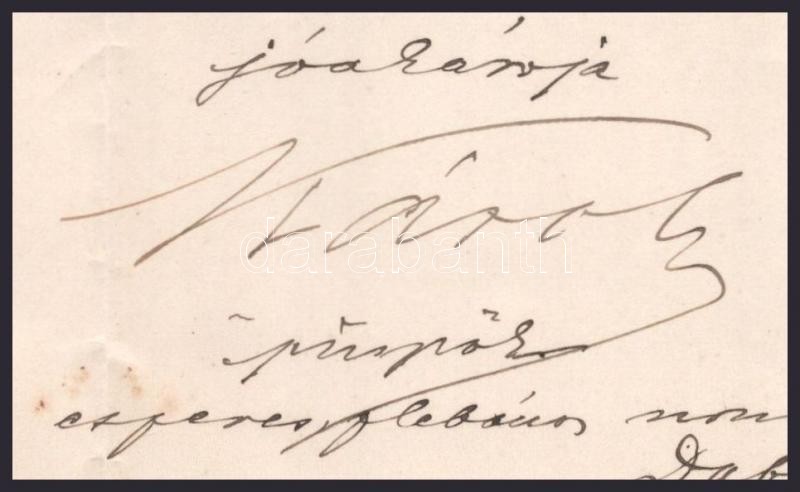 jóakarója
Károly
püspök
esperes plebános
darabanth